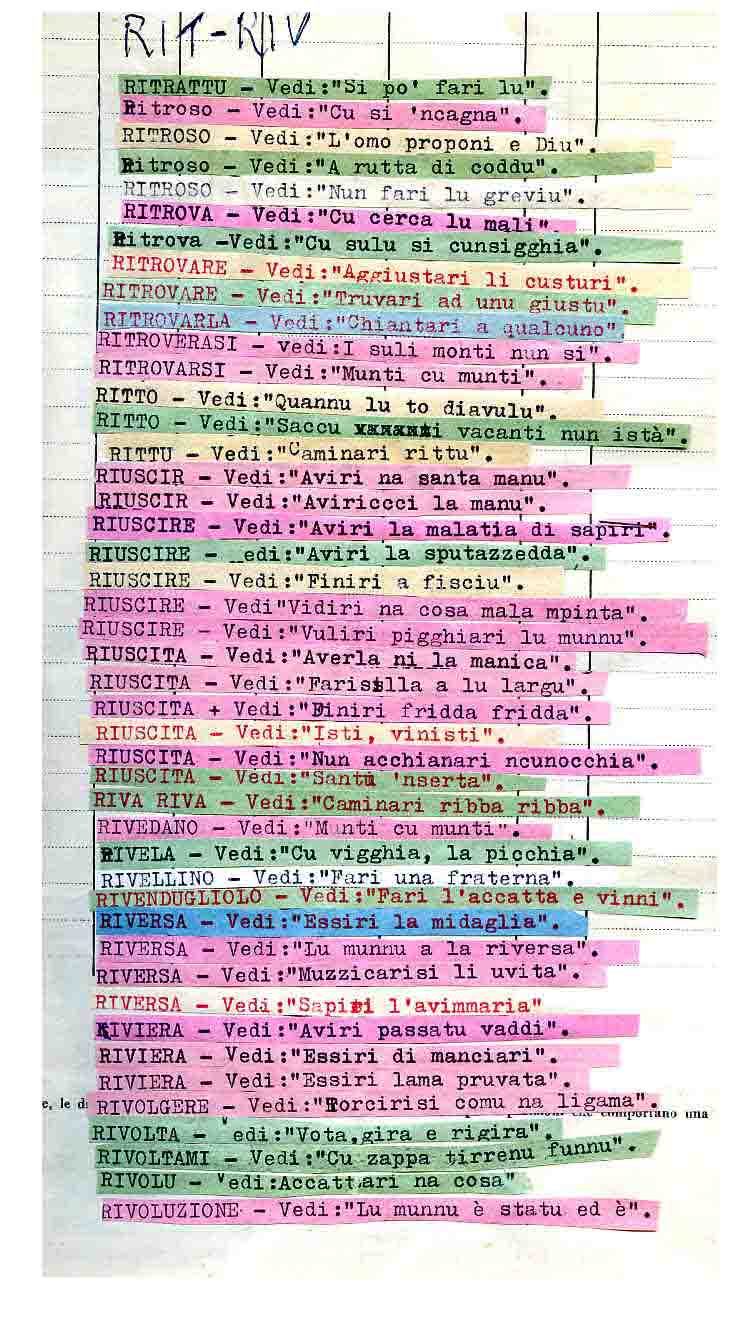 RIT-RIV
RITRATTU - Vedi:"Si po' fari lu".
Ritroso - Vedi:"Cu si 'ncagna".
RITROSO - Vedi:"L'omo proponi e Diu".
Ritroso - Vedi:"A rutta di coddu".
RITROSO - Vedi:"Nun fari lu greviu".
RITROVA - Vedi:"Cu cerca lu mali".
Ritrova -Vedi:"Cu sulu si cunsigghia".
RITROVARE - Vedi:"Aggiustari li custuri".
RITROVARE - Vedi:"Truvari ad unu giustu".
RITROVARLA - Vedi:"Chiantari a qualcuno".
RITROVERASI - vedi:I suli monti nun si".
RITROVARSI - Vedi:"Munti cu munti".
RITTO - Vedi:"Quannu lu to diavulu".
RITTO - Vedi:"Saccu vacanti nun istà".
RITTU - Vedi:"Caminari rittu".
RIUSCIR - Vedi:"Aviri na santa manu".
RIUSCIR - Vedi:"Aviricci la manu".
RIUSCIRE - Vedi:"Aviri la malatia di sapiri".
RIUSCIRE - edi:"Aviri la sputazzedda".
RIUSCIRE - Vedi:"Finiri a fisciu".
RIUSCIRE - Vedi"Vidiri na cosa mala mpinta".
RIUSCIRE - Vedi:"Vuliri pigghiari lu munnu".
RIUSCITA - Vedi:"Averla ni la manica".
RIUSCITA - Vedi:"Farisilla a lu largu".
RIUSCITA + Vedi:"Finiri fridda fridda".
RIUSCITA - Vedi:"Isti, vinisti".
RIUSCITA - Vedi:"Nun acchianari ncunocchia".
RIUSCITA - Vedi:"Santu 'nserta".
RIVA RIVA - Vedi:"Caminari ribba ribba".
RIVEDANO - Vedi:"Munti cu munti".
RIVELA - Vedi:"Cu vigghia, la picchia".
RIVELLINO - Vedi:"Fari una fraterna".
RIVENDUGLIOLO - Vedi:"Fari l'accatta e vinni".
RIVERSA - Vedi:"Essiri la midaglia".
RIVERSA - Vedi:"Lu munnu a la riversa".
RIVERSA - Vedi:"Muzzicarisi li uvita".
RIVERSA - Vedi:"Sapiri l'avimmaria"
RIVIERA - Vedi:"Aviri passatu vaddi".
RIVIERA - Vedi:"Essiri di manciari".
RIVIERA - Vedi:"Essiri lama pruvata".
RIVOLGERE - Vedi:"Torcirisi comu na ligama".
e, le di che comportano una
RIVOLTA - Vedi:"Vota,gira e rigira".
RIVOLTAMI - Vedi:"Cu zappa tirrenu funnu".
RIVOLU - Vedi:Accattari na cosa"
RIVOLUZIONE - Vedi:"Lu munnu è statu ed è".